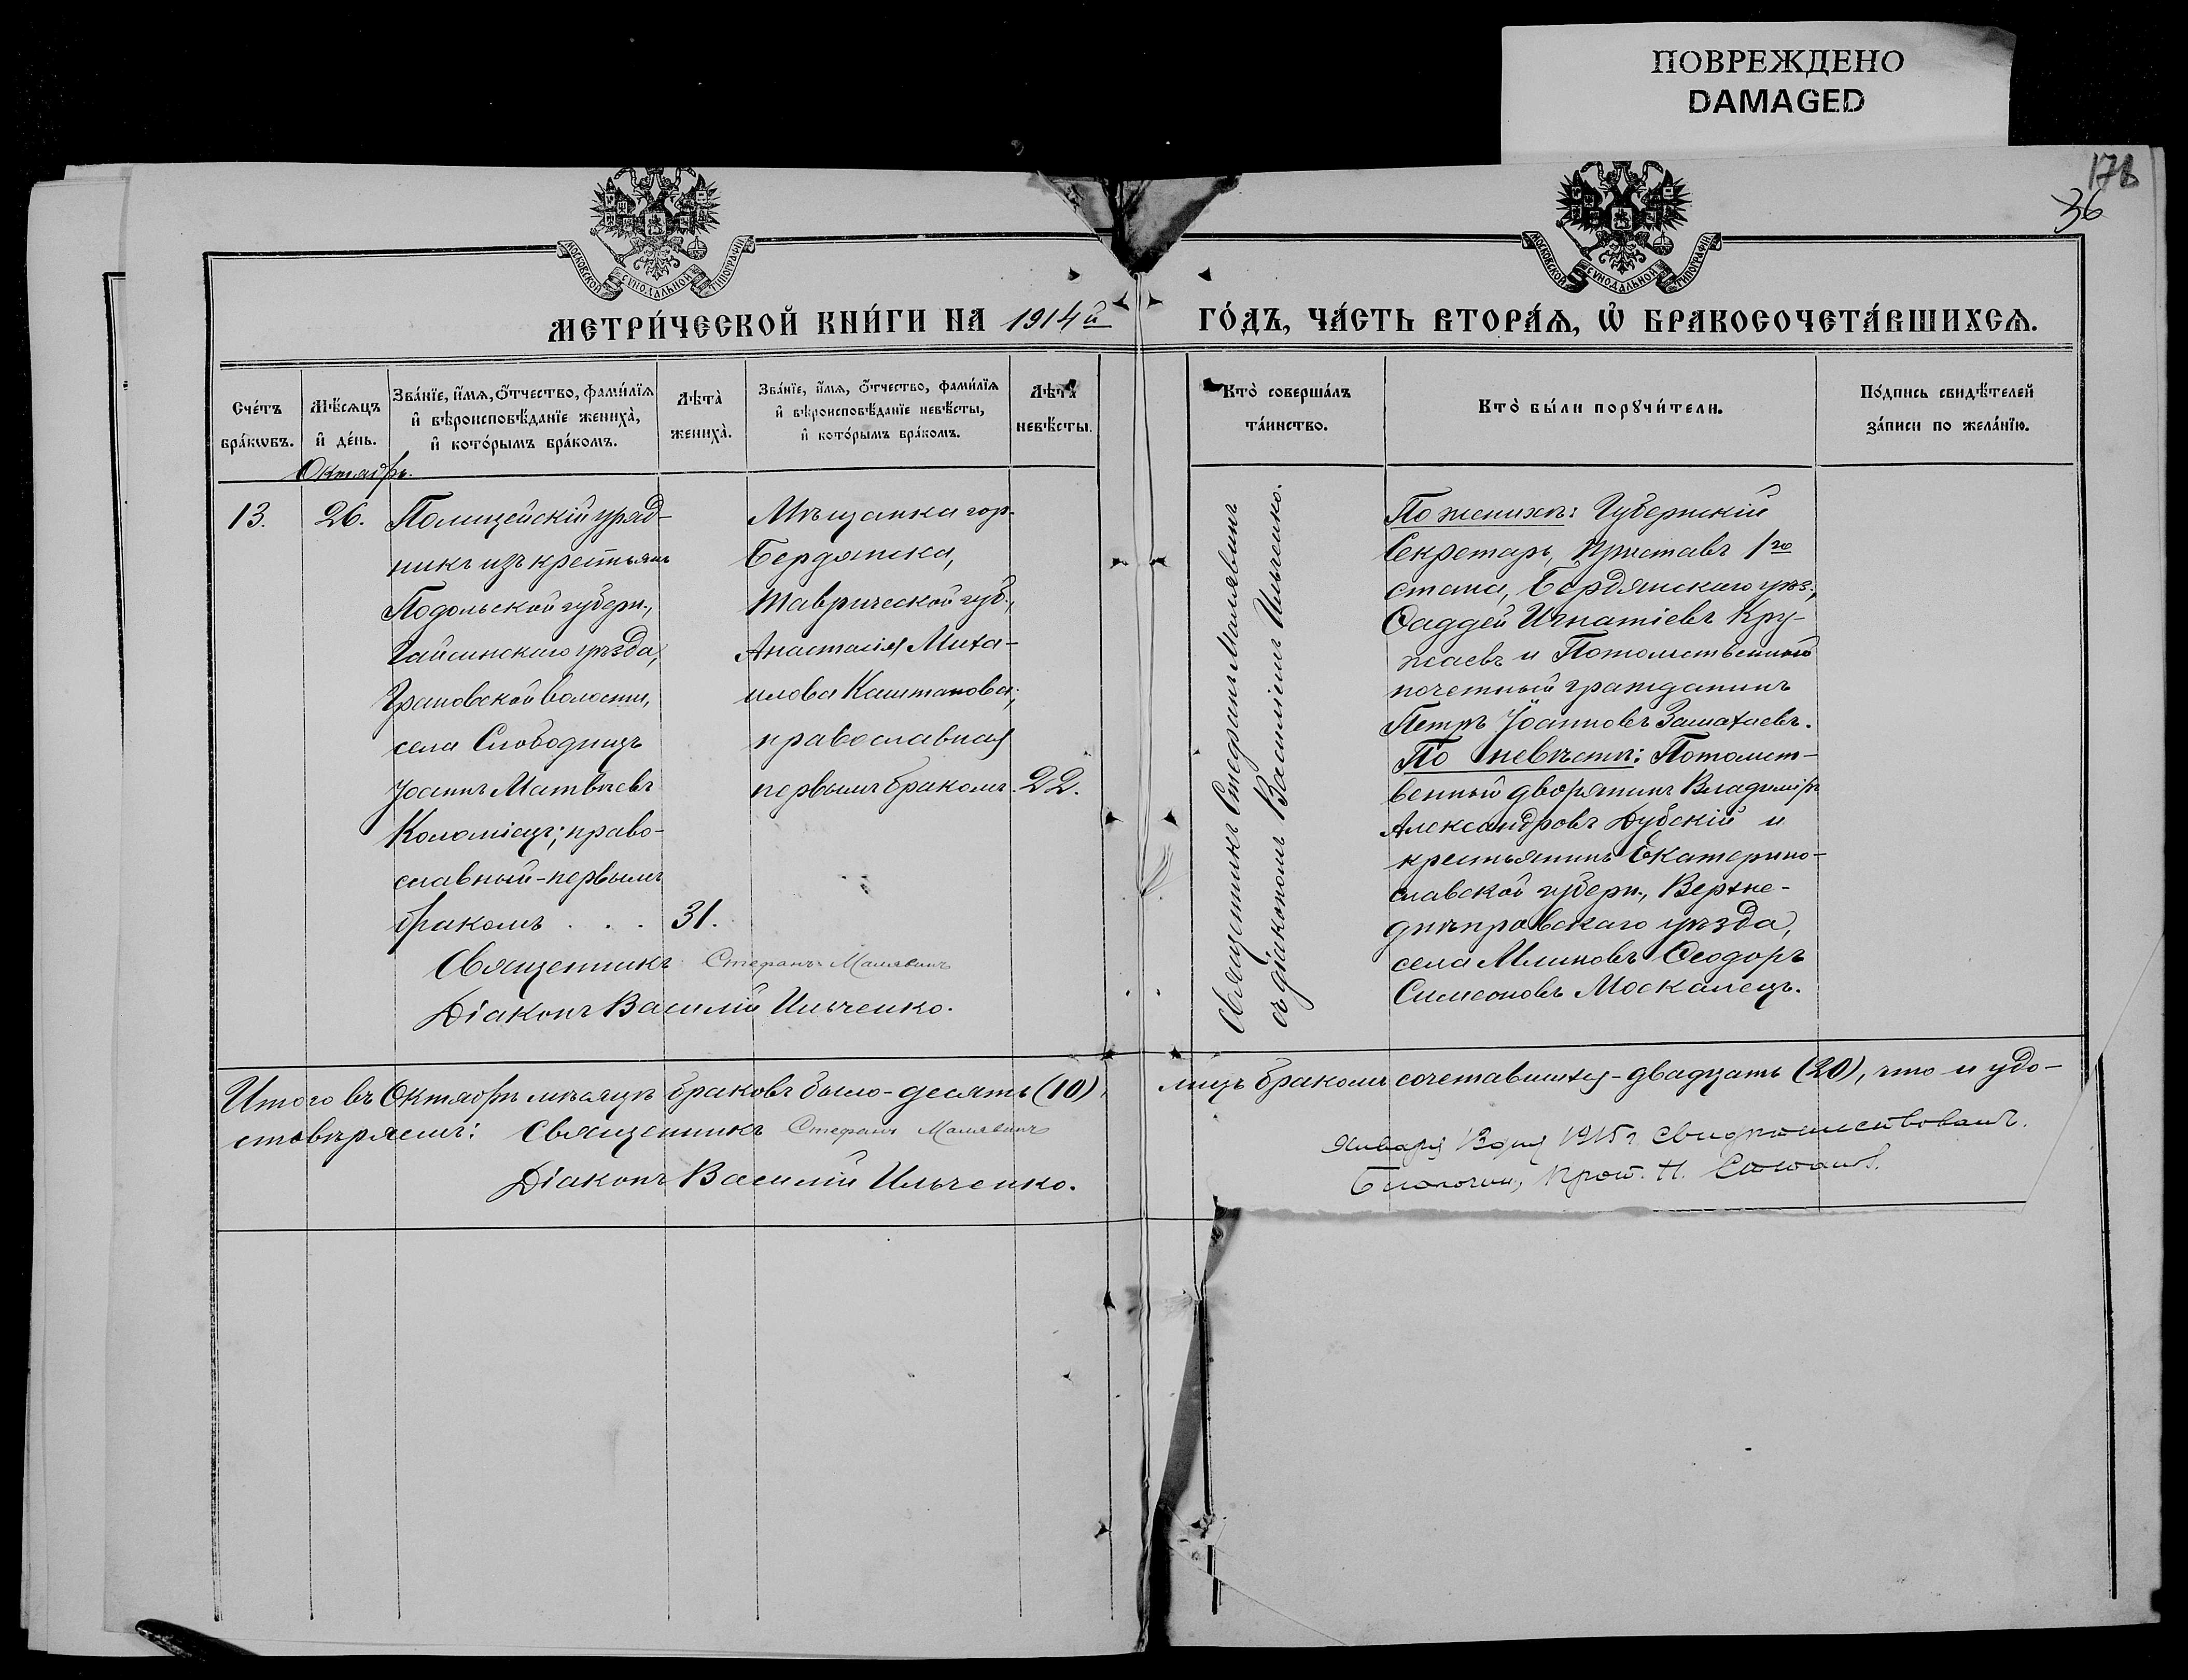 ПОВРЕЖДЕНО
DAMAGED
178
36
МОСКОВСКОЙ СѴНОДАЛЬНОЙ ТИПОГРАФІИ
МОСКОВСКОЙ СѴНОДАЛЬНОЙ ТИПОГРАФІИ
МЕТРИ́ЧЕСКОЙ КНИ́ГИ НА 1914й ГО́ДЪ, ЧА́СТЬ ВТОРА́Ѧ, Ѽ БРАКОСОЧЕТА́ВШИХСѦ.
Сче́тъ
бра́кѡвъ.
Мѣ́сѧцъ
и҆ де́нь.
Зва́нїе, и҆́мѧ, ѻ҆́тчество, фами́лїѧ
и҆ вѣроисповѣ́данїе жениха̀,
и҆ кото́рымъ бра́комъ.
Лѣ́та̀
жениха̀.
Зва́нїе, и҆́мѧ, ѻ҆́тчество, фами́лїѧ
и҆ вѣроисповѣ́данїе невѣ́сты,
и҆ кото́рымъ бра́комъ.
Лѣ́та̀
невѣ́сты.
Кто̀ соверша́лъ
та́инство.
Кто̀ бы́ли порꙋчи́тели.
По́дпись свидѣ́телей
за́писи по жела́нїю.
Октябрь.
13.
26.
Полицейскій уряд-
никъ изъ крестьянъ
Подольской губерн.,
Гайсинскаго уѣзда,
Грановской волости,
села Слободищъ
Іоаннъ Матвѣевъ
Коломіецъ; право-
славный - первымъ
бракомъ . . . 31.
Мѣщанка гор.
Бердянска,
Таврической губ.,
Анастасія Миха-
илова Каштанова;
православная
первымъ бракомъ. 22.
Священникъ Стефанъ Малявинъ
Діаконъ Василій Ильченко.
Священникъ Стефанъ Малявинъ
съ діакономъ Василіемъ Ильченко.
По женихѣ: Губернскій
Секретарь, Приставъ 1го
стана, Бердянскаго уѣз.,
Фаддей Игнатіевъ Кру-
жаевъ и Потомственный
почетный гражданинъ
Петръ Іоанновъ
По невѣстѣ: Потомст-
венный дворянинъ Владиміръ
Александровъ Дубскій и
крестьянинъ Екатерино-
славской губерн., Верхне-
днѣпровскаго уѣзда,
села Млиновъ Ѳеодоръ
Симеоновъ Москалецъ.
Итого въ Октябрѣ мѣсяцѣ браковъ было - десять (10), лицъ бракомъ сочетавшихся - двадцать (20), что и удо-
стовѣряемъ: Священникъ Стефанъ Малявинъ
Діаконъ Василій Ильченко.
Января 13 дня 1915 г. свидѣтельствовалъ.
Благочин., Прот. Н.